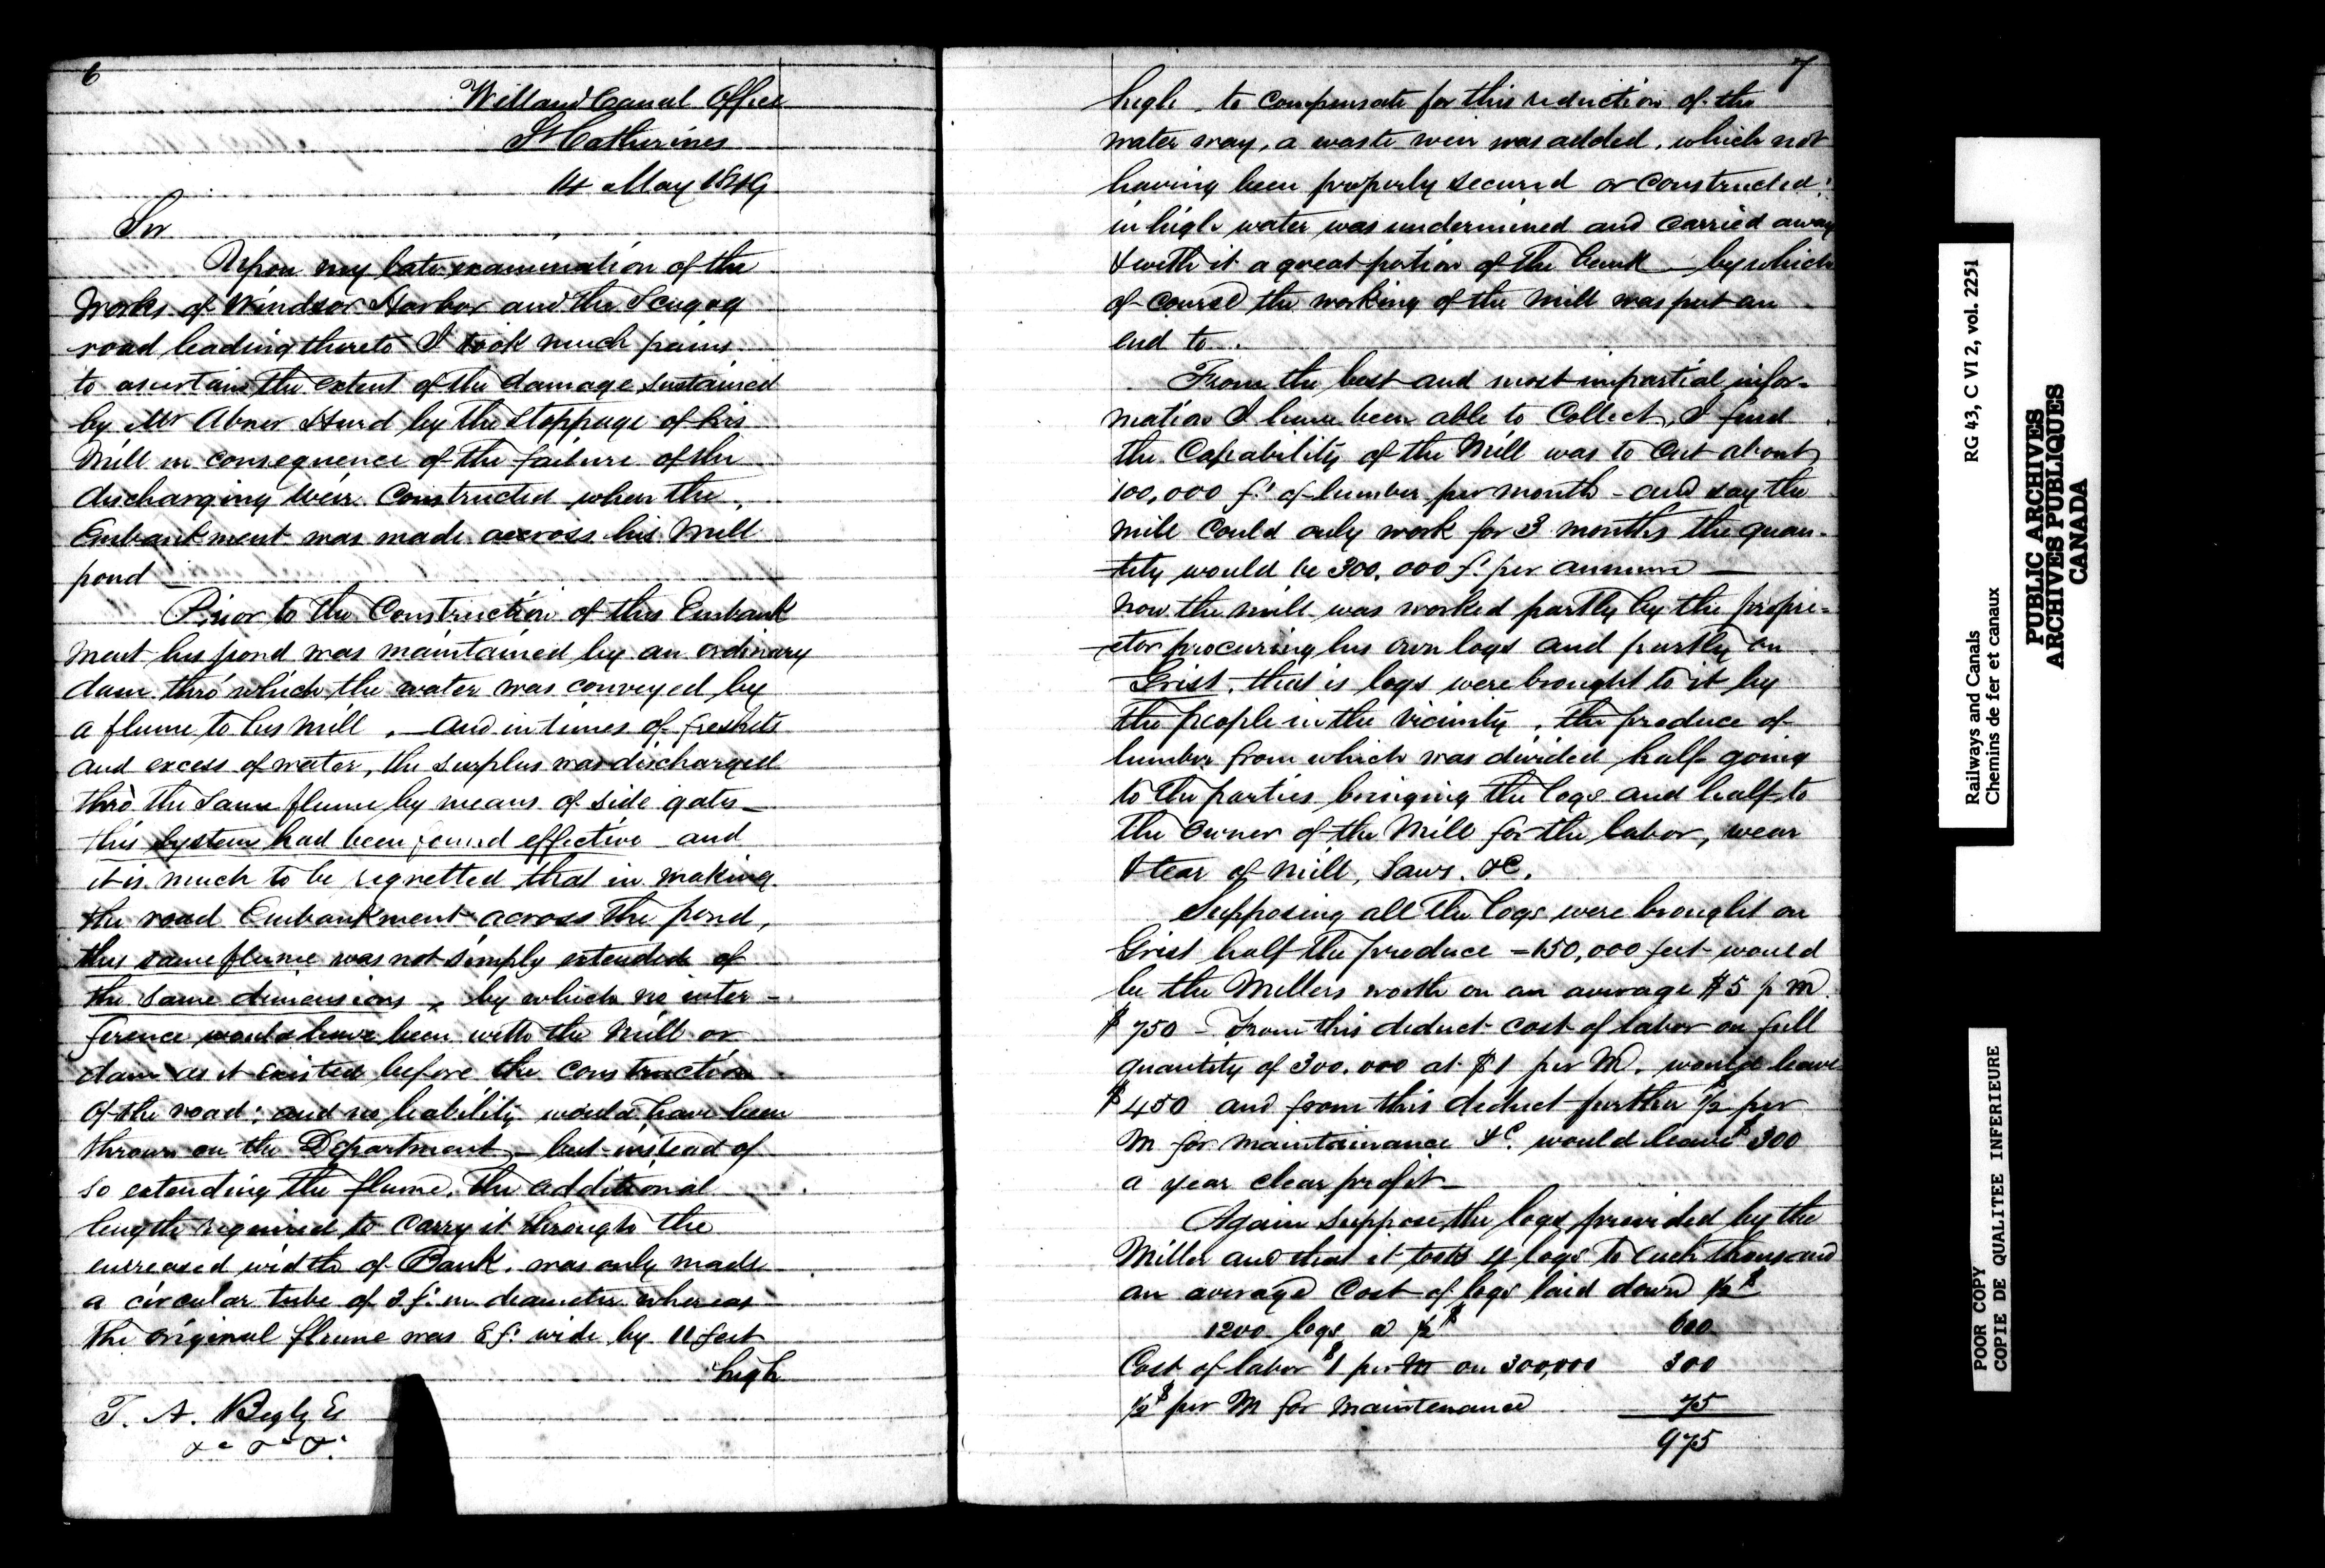 6
Welland Canal Office
St Catherines
14 May 1849
Sir
Upon my late examination of the
Works of Windsor Harbor and the Scugog
road leading thereto I took much pains
to ascertain the extent of the damage sustained
by Mr Abner Hurd by the stoppage of his
Mill in consequence of the failure of the
discharging Weir Constructed when the
Embankment was made across his Mill
pond —
Prior to the Construction of this Embank
ment his pond was maintained by an ordinary
dam thro' which the water was conveyed by
a flume to his Mill, — and in times of freshets
and excess of water, the surplus was discharged
thro' the same flume by means of side gates —
this system had been found effective and
it is much to be regretted that in making
the road Embankment across the pond,
this same flume was not simply extended of
the same dimensions, by which no inter-
ference would have been with the Mill or
dam as it existed before the construction
of the road; and no liability would have been
thrown on the Department — but instead of
so extending the flume, the additional
length required to carry it through the
encreased width of Bank, was only made
a circular tube of 3 ft in diameter whereas
the original flume was 8 ft wide by 11 feet
high
T. A. Begly Es
&c &c &c
7
high — to compensate for this reduction of the
water way, a waste weir was added, which not
having been properly secured or constructed,
in high water was undermined and carried away
& with it a great portion of the bank — by which
of course the working of the mill was put an
end to.
From the best and most impartial infor-
mation I have been able to Collect, I find
the Capability of the Mill was to Cut about
100,000 ft of lumber per month - and say the
mill could only work for 3 months the quan-
tity would be 300,000 ft per annum —
now the mill was worked partly by the propri-
etor procuring his own logs and partly on
Grist, that is logs were brought to it by
the people in the vicinity, the produce of
lumber from which was divided half going
to the parties bringing the logs and half to
the owner of the Mill for the labor, wear
& tear of mill, saws, &c.
Supposing all the logs were brought on
Grist half the produce - 150,000 feet would
be the Millers worth on an average $5 p M
$750 - From this deduct cost of labor on full
quantity of 300,000 at $1 per M. would leave
$450 and from this deduct further $½ per
M for maintainance &c. would leave $300
a year clear profit —
Again suppose the logs provided by the
Miller and that it took 4 logs to each thousand
an average Cost of logs laid down ½$
1200 logs @ ½$ 600
Cost of labor $1 per M on 300,000 300
½$ per M for Maintenance 75
975
RG 43, C VI 2, vol. 2251
Railways and Canals
Chemins de fer et canaux
PUBLIC ARCHIVES
ARCHIVES PUBLIQUES
CANADA
POOR COPY
COPIE DE QUALITEE INFERIEURE